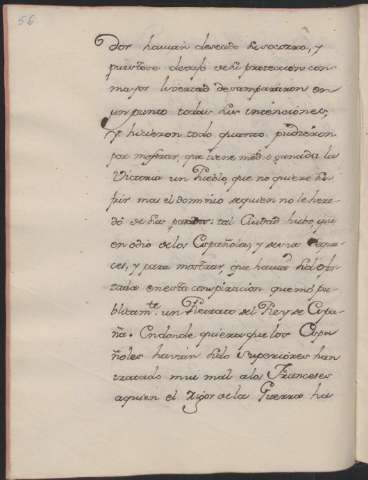 56
Dor havian deseado Su socorro, y
puestose debajo de su proteccion con
mayor livertad desampararon en
un punto todas sus intenciones,
Se hicieron todo quanto pudieron
por mostrar, que tiene medio ganada la
Victoria un Pueblo, que no quiere Su
frir mas el dominio de quien no le here
dó de sus Padres: tal Ciudad hubo, que
en odio de los Españoles, y seria
ces, y para mostrar, que havia sido
tada en esta conspiracion quemó pu
blicam.te un Retrato del Rey de Espa
ña. En donde quiera que los Espa
ñoles havian sido Superiores han
tratado mui mal a los Franceses
a quien el rigor de la Guerra ha